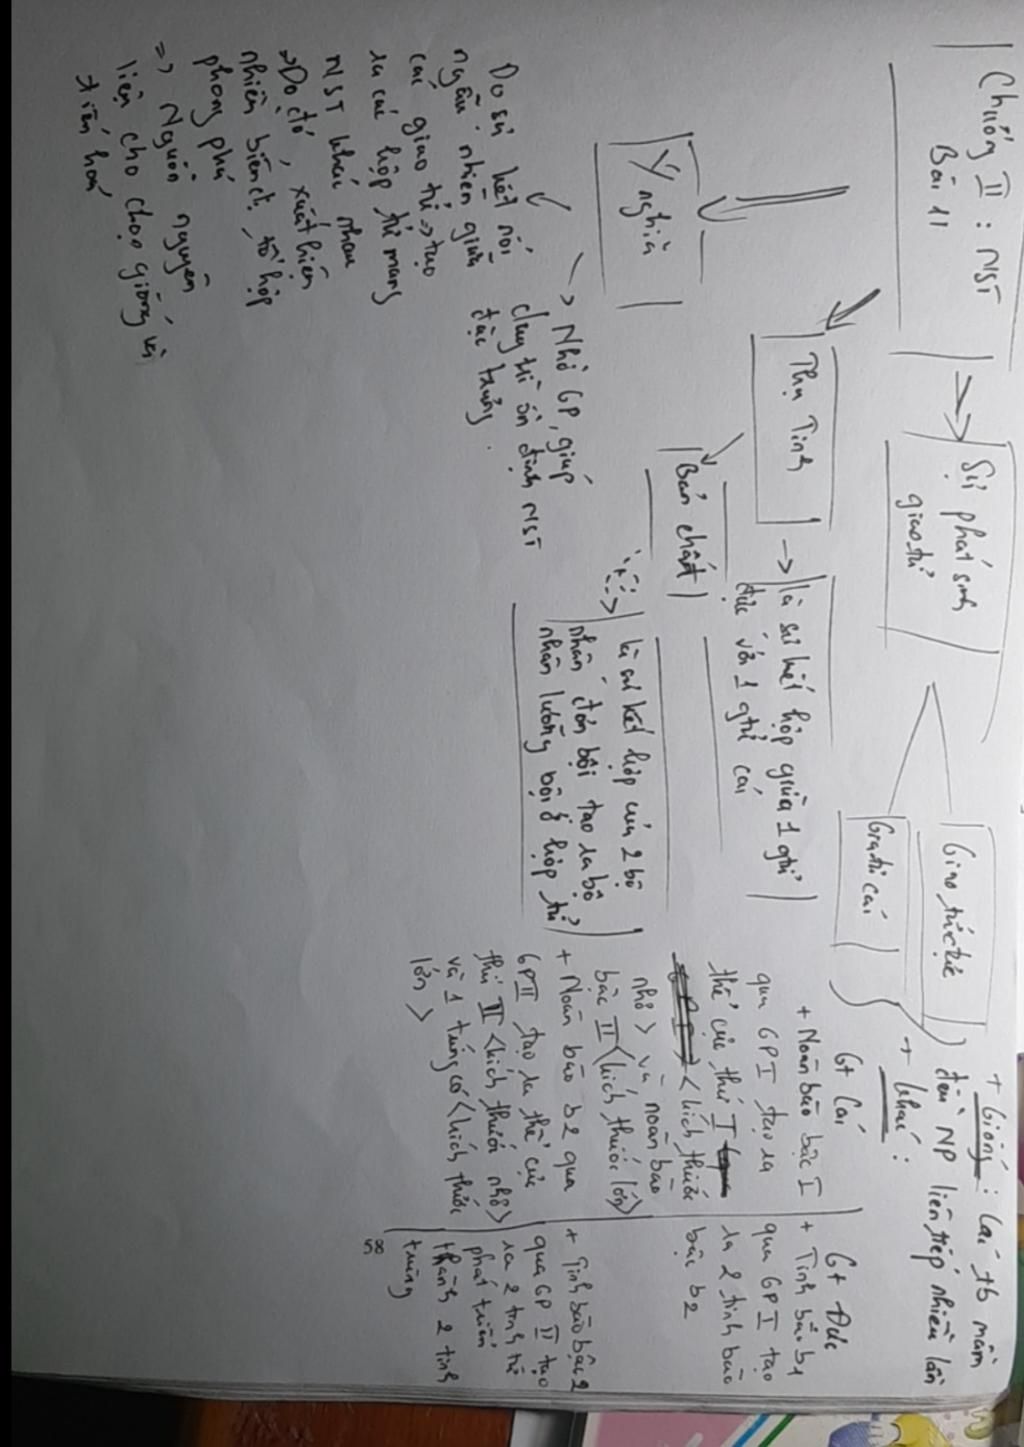 Chương II : NST
Bài 11
Sự phát sinh
giao tử
Giao tử đực
Giao tử cái
+ Giống : Các tb mầm
đều NP liên tiếp nhiều lần
+ Khác :
Gt Cái
+ Noãn bào bậc I
qua GP I tạo ra
thể cực thứ I
<kích thước
nhỏ> và noãn bào
bậc II <kích thước lớn>
+ Noãn bào b2 qua
GP II tạo ra thể cực
thứ II <kích thước nhỏ>
và 1 <kích thước
lớn>
Gt Đực
+ Tinh bào b1
qua GP I tạo
ra 2 tinh bào
bậc b2
+ Tinh bào bậc 2
qua GP II tạo
ra 2 tinh tử
phát triển
thành 2 tinh
trùng
Thụ Tinh
là sự kết hợp giữa 1 gtử
đực với 1 gtử cái
Bản chất
là sự kết hợp của 2 bộ
nhân đơn bội tạo ra bộ
nhân lưỡng bội ở hợp tử
Ý nghĩa
-> Nhờ GP, giúp
duy trì ổn định NST
đặc trưng .
Do sự kết nối
ngẫu nhiên giữa
các giao tử => tạo
ra các hợp tử mang
NST khác nhau
=> Do đó, xuất hiện
nhiều biến dị tổ hợp
phong phú
=> Nguồn nguyên
liệu cho chọn giống và
tiến hoá
58